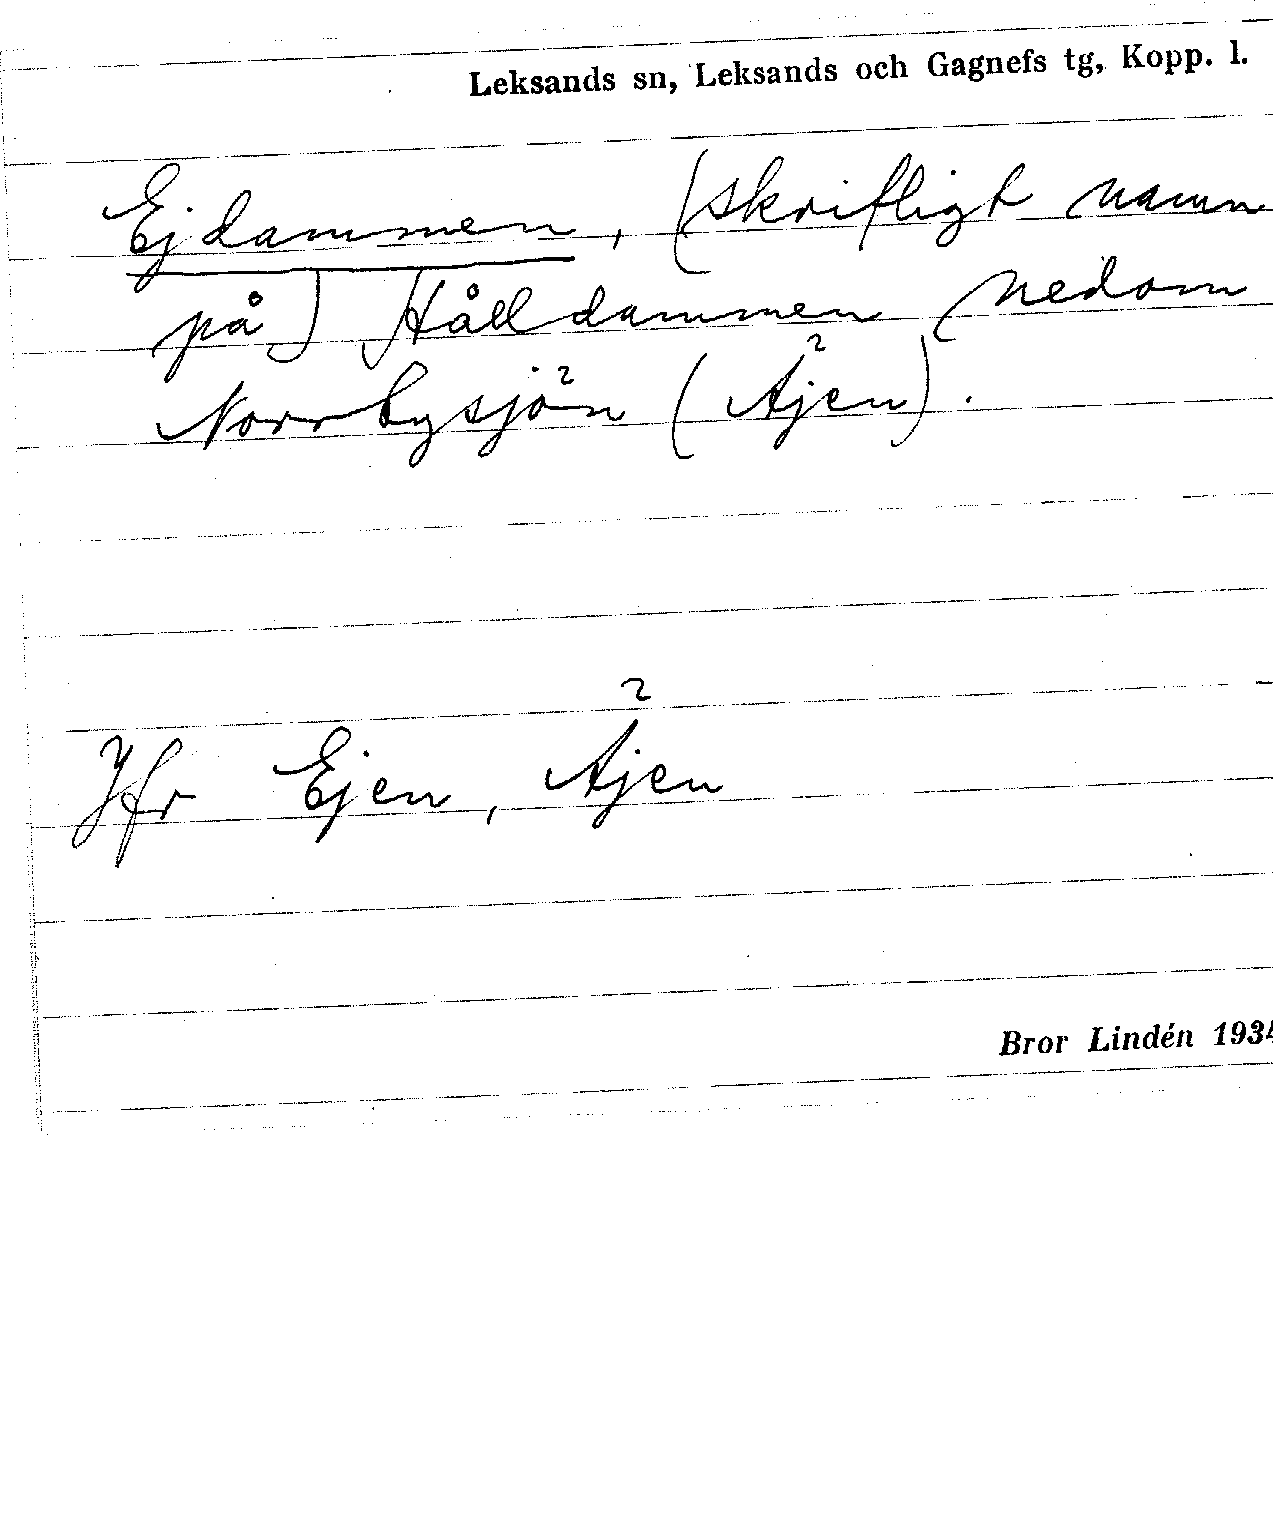 Leksands sn, Leksands och Gagnefs tg, Kopp. l.
Ejdammen, (skrifligt namn
på) Hålldammen nedom
Norrbysjön (Äjen).
Jfr Ejen, Äjen
Bror Lindén 1934